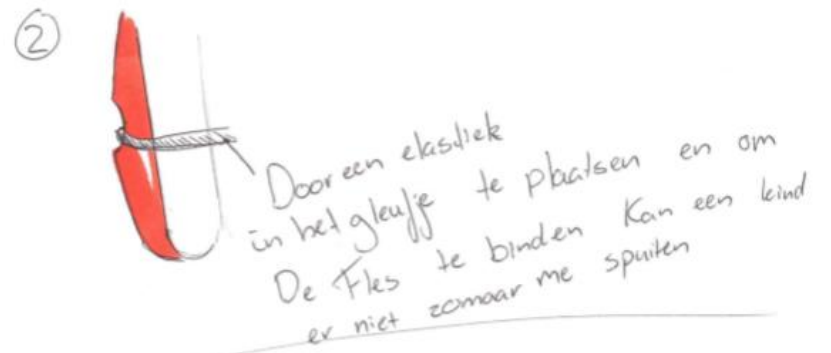 2
Door een elastiek
in het gleufje te plaatsen en om
De Fles te binden Kan een kind
er niet zomaar me spuiten